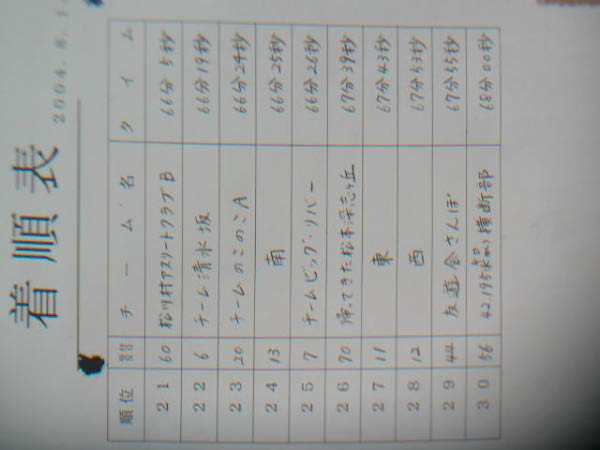 着順表
2004.8.1
順位 番号 チーム名 タイム
21 60 松川村アスリートクラブB 66分5秒
22 6 チーム清水坂 66分19秒
23 20 チームのこのこA 66分24秒
24 13 南 66分25秒
25 7 チームビッグ・リバー 66分26秒
26 70 帰ってきた松本深志ヶ丘 67分39秒
27 11 東 67分43秒
28 12 西 67分53秒
29 44 友遊会さんぽ 67分55秒
30 56 42.195km横断部 68分00秒